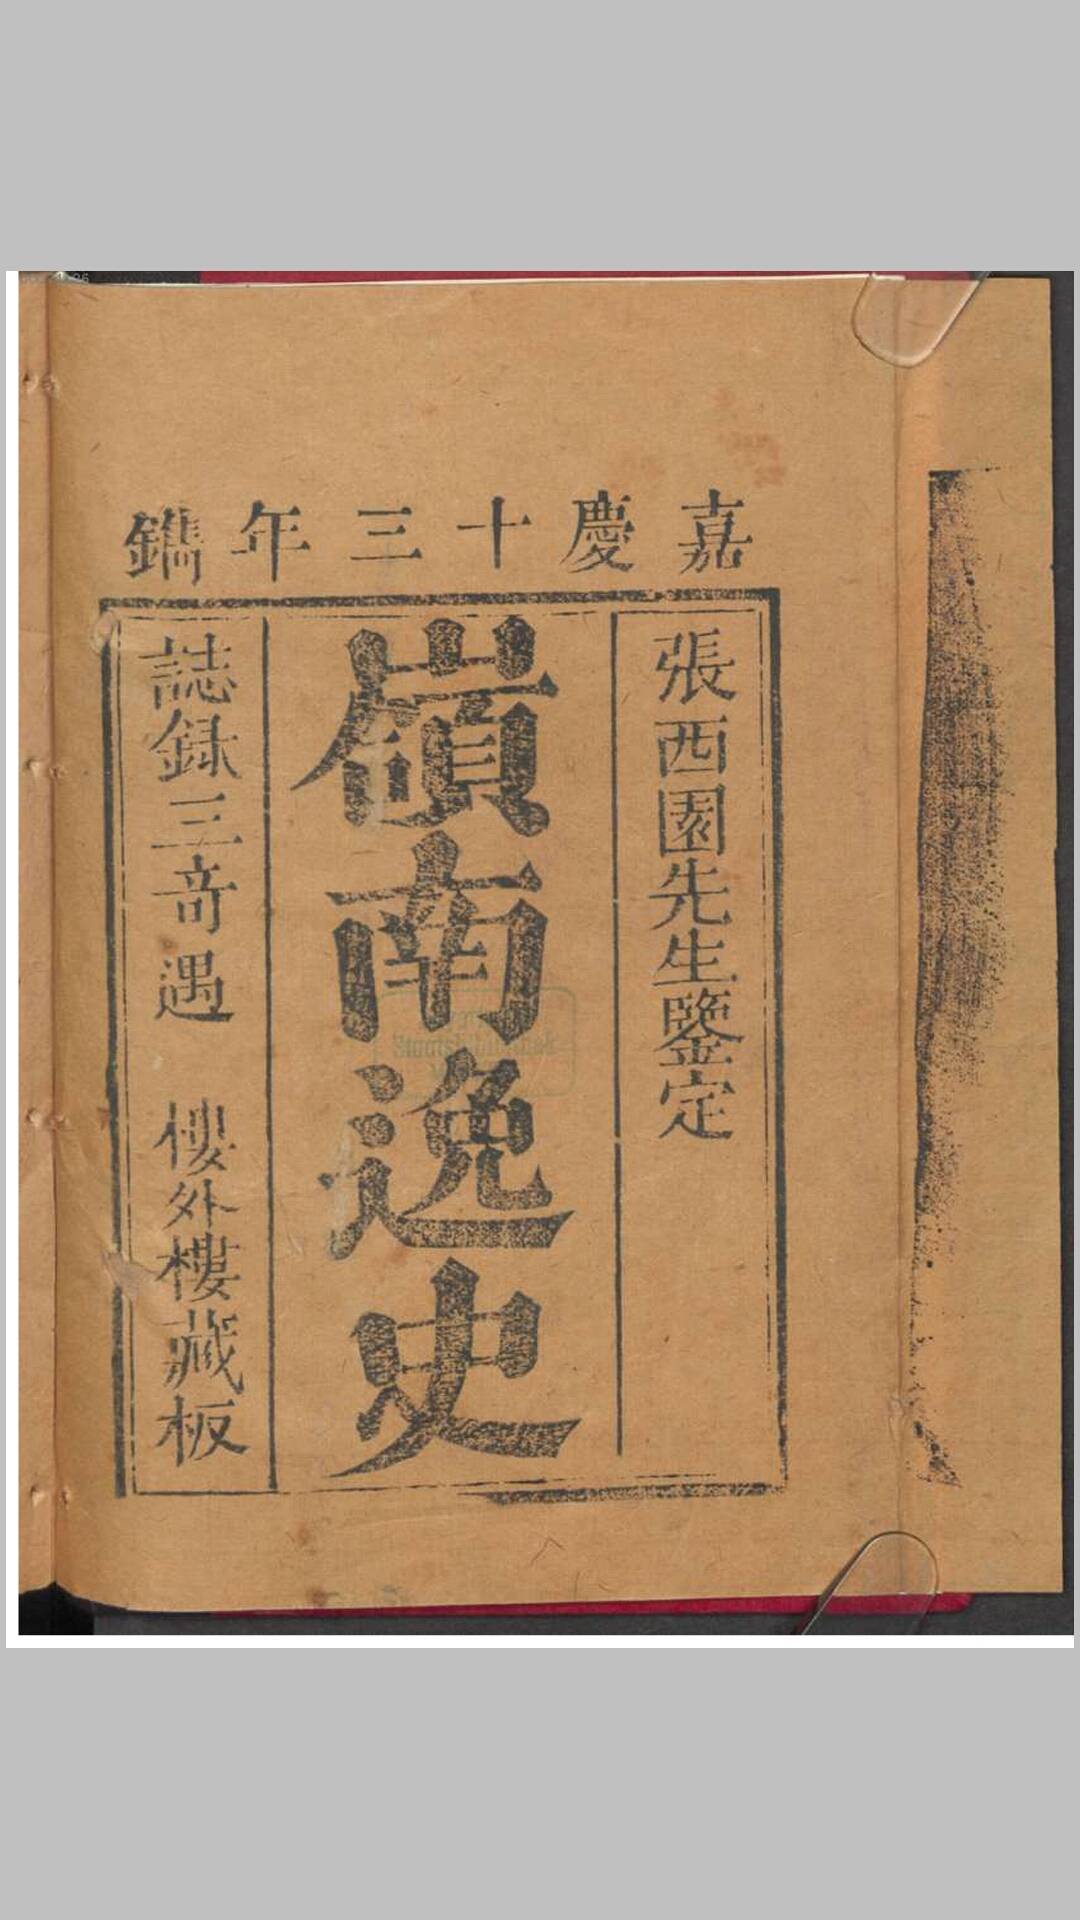 嘉慶十三年鐫
張西園先生鑒定
嶺南逸史
誌録三奇遇 樓外樓藏板